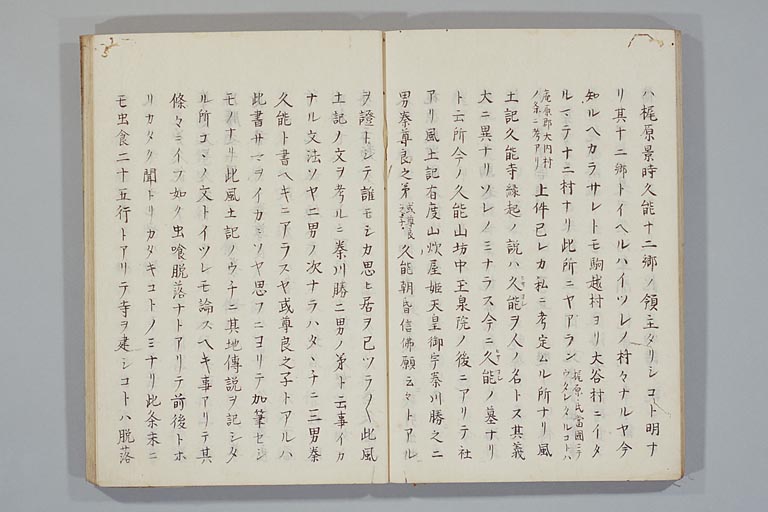 ハ梶原景時久能十二郷ノ領主タリシコト明ナ
リ其十二郷トイヘルハイツレノ村々ナルヤ今
知ルヘカラサレトモ駒越村ヨリ大谷村ニイタ
ルマテ十二村ナリ此所ニヤアラン梶原氏當國ニテウタレタルコトハ
庵原郡大内村ノ条ニ考アリ上件已レカ私ニ考定ムル所ナリ風
土記久能寺縁起ノ説ハ久能ヲ人ノ名トス其義
大ニ異ナリソレノミナラス今ニ久能ノ墓ナリ
ト云所今ノ久能山坊中玉泉院ノ後ニアリテ社
アリ風土記有度山炊屋姫天皇御宇秦川勝之二
男秦尊良之弟或尊良子久能朝昏信佛願云々トアル
ヲ證トシテ誰モシカ思ヒ居ヲ已ツラ〳〵此風
土記ノ文ヲ考ルニ秦川勝二男ノ弟ト云事イカ
ナル文法ソヤ二男ノ次ナラハタヽチニ三男秦
久能ト書ヘキニアラスヤ或尊良之子トアルハ
此書サマヲイカニソヤ思フニヨリテ加筆セシ
モノナリ此風土記ノウチニ其地傳説ヲ記シタ
ル所コヽノ文トイツレモ論スヘキ事アリテ其
條々ニイフ如ク虫喰脱落ナトアリテ前後トホ
リカタク聞トリカタキコトノミナリ此条末ニ
モ虫食二十五行トアリテ寺ヲ建シコトハ脱落